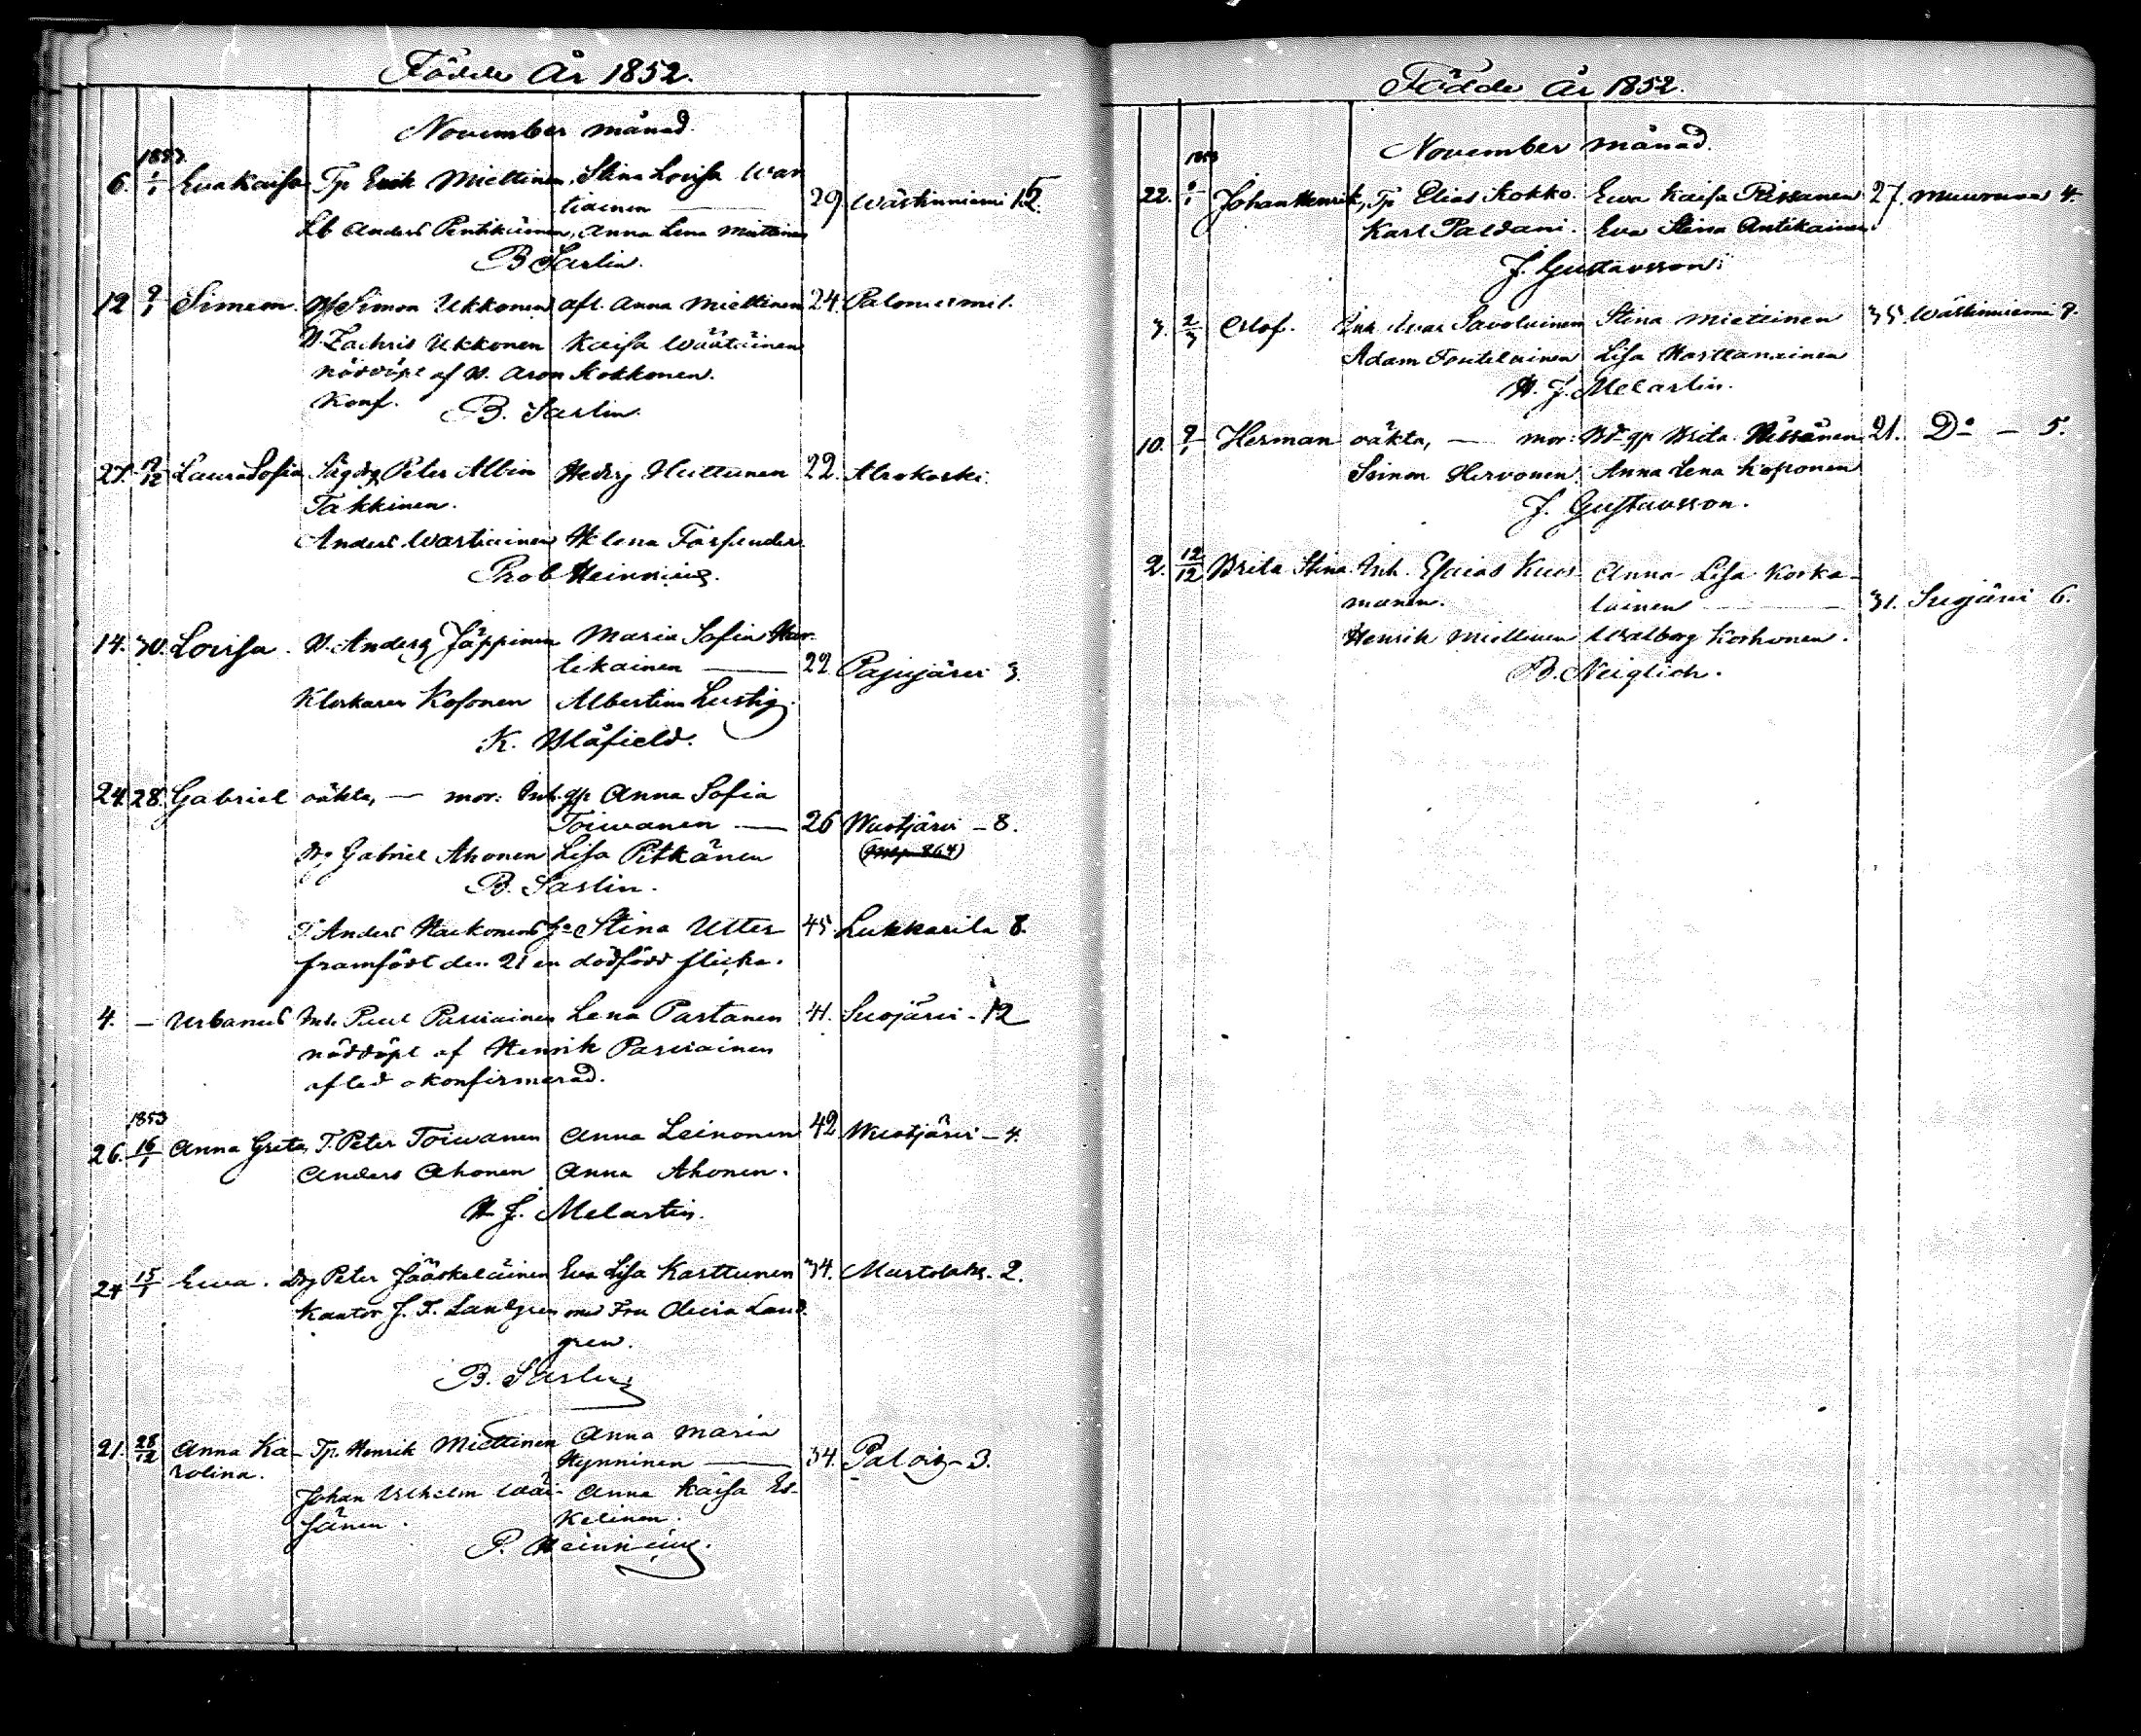 Födde År 1852.
November månad.
1853.
6. 1/1 Eva Kaisa Tp Erik Miettinen, Stina Lovisa War
tiainen — 29. Wästinniemi 15.
Lb Anders Pentikäinen, Anna Lena Miettinen
B Sarlin.
12 9/1 Simeon. Simon Ukkonen afl. Anna Miettinen 24.
B. Zachris Ukkonen Kaisa Väätäinen
nöddöpt af B. Aron Kokkonen.
Konf. B. Sarlin.
27. /12 Laura Sofia Peter Albin Hedvig Huttunen 22. Alrokoski.
Takkinen.
Anders Wartiainen Helena
Prob Heinricius.
14. 30. Lovisa. B. Anders Jäppinen Maria Sofia Har-
tikainen — 22. Pajujärvi 3.
Klockaren Kosonen Albertina Lustig.
K. Blåfield.
24. 28. Gabriel oäkta, — mor: Inh. qp Anna Sofia
Toivanen — 26 Wuotjärvi – 8.
Dg Gabriel Ahonen Lisa Pitkänen
B. Sarlin.
T. Anders Stina Utter 45 Lukkarila 8.
framfödt den 21 en dödfödd flicka.
4. — Urbanus Inh. Paul Parviainen Lena Partanen 41. Suojärvi - 12
nöddöpt af Henrik Parviainen
afled okonfirmerad.
1853
26. 16/1 Anna Greta, T. Peter Toivanen Anna Leinonen 42 Wuotjärvi – 4.
Anders Ahonen Anna Ahonen.
H. J. Melartin.
24 15/1 Ewa. Dg Peter Jääskeläinen Eva Lisa Karttunen 34. Murtolaks. 2.
Kantor J. F. Landgren med Fru Olivia Land-
gren.
B. Sarlin
21. 28/12 Anna Ka- Tp. Henrik Miettinen Anna Maria
rolina. Hynninen — 34. Palois – 3.
Johan Vilhelm Wäi- Anna Kaisa Es-
sänen. kelinen.
P. Heinricius.
Födde År 1852.
November månad.
1853
22. /1 Johan Henrik, Tp Elias Kokko. Ewa Kaisa Rissanen 27. Muuruves 4.
Karl Paldani. Eva Stina Antikainen.
J. Gustavsson.
3. 2/3 Olof. Inh. Ivar Savolainen Stina Miettinen 35 Wästinniemi 9.
Adam Toutelainen Lisa
H. J. Melartin.
10. 9/1 Herman oäkta, — mor: Bd. qp Brita Hissänen 21. Do – 5.
Simon Hirvonen Anna Lena Koponen
J. Gustavsson.
2. 12/12 Brita Stina Inh. Esaias Kuos- Anna Lisa Korka-
manen. lainen — 31. Suojärvi 6.
Henrik Miettinen Walborg Korhonen.
B. Neiglick.